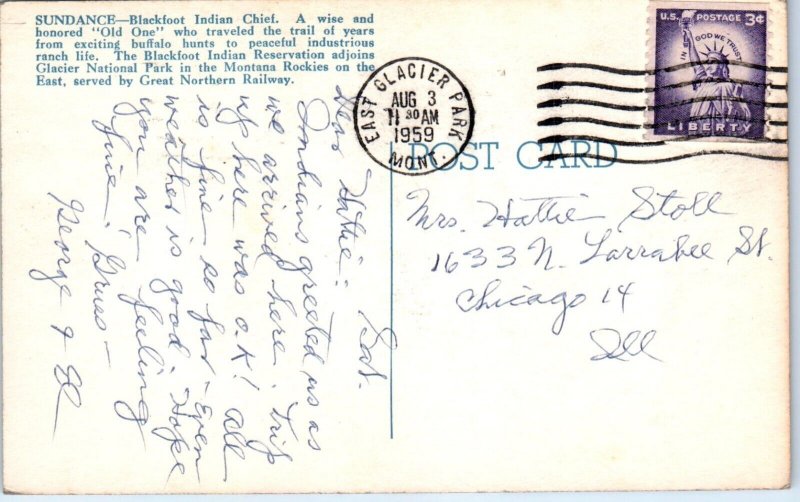 SUNDANCE—Blackfoot Indian Chief. A wise and
honored "Old One" who traveled the trail of years
from exciting buffalo hunts to peaceful industrious
ranch life. The Blackfoot Indian Reservation adjoins
Glacier National Park in the Montana Rockies on the
East, served by Great Northern Railway.
Sat.
Dear Hattie:
Indians greeted us as
we arrived here. Trip
up here was O.K! All
is fine so far - Even
weather is good. Hope
you are feeling
fine.
George &
EAST GLACIER PARK
AUG 3
11 30 AM
1959
MONT.
U.S. POSTAGE 3¢
IN GOD WE TRUST
LIBERTY
POST CARD
Mrs. Hattie Stoll
1633 N. Larrabee St.
Chicago 14
Ill